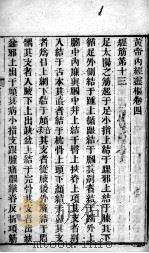 1
黃帝內經靈樞卷四
經筋第十三
足太陽之筋起于足小指上結于踝邪上結于膝其下
循足外側結于踵上循跟結于膕其別者結于踹外上
膕中內廉與膕中并上結于臀上挾脊上項其支者別
入結于舌本其直者結于枕骨上頭下顏結于鼻其支
者為目上網下結于頄其支者從腋後外廉結于肩
髃其支者入腋下上出缺盆上結于完骨其支者出缺
盆邪上出于頄其病小指支跟腫痛膕攣脊反折項筋